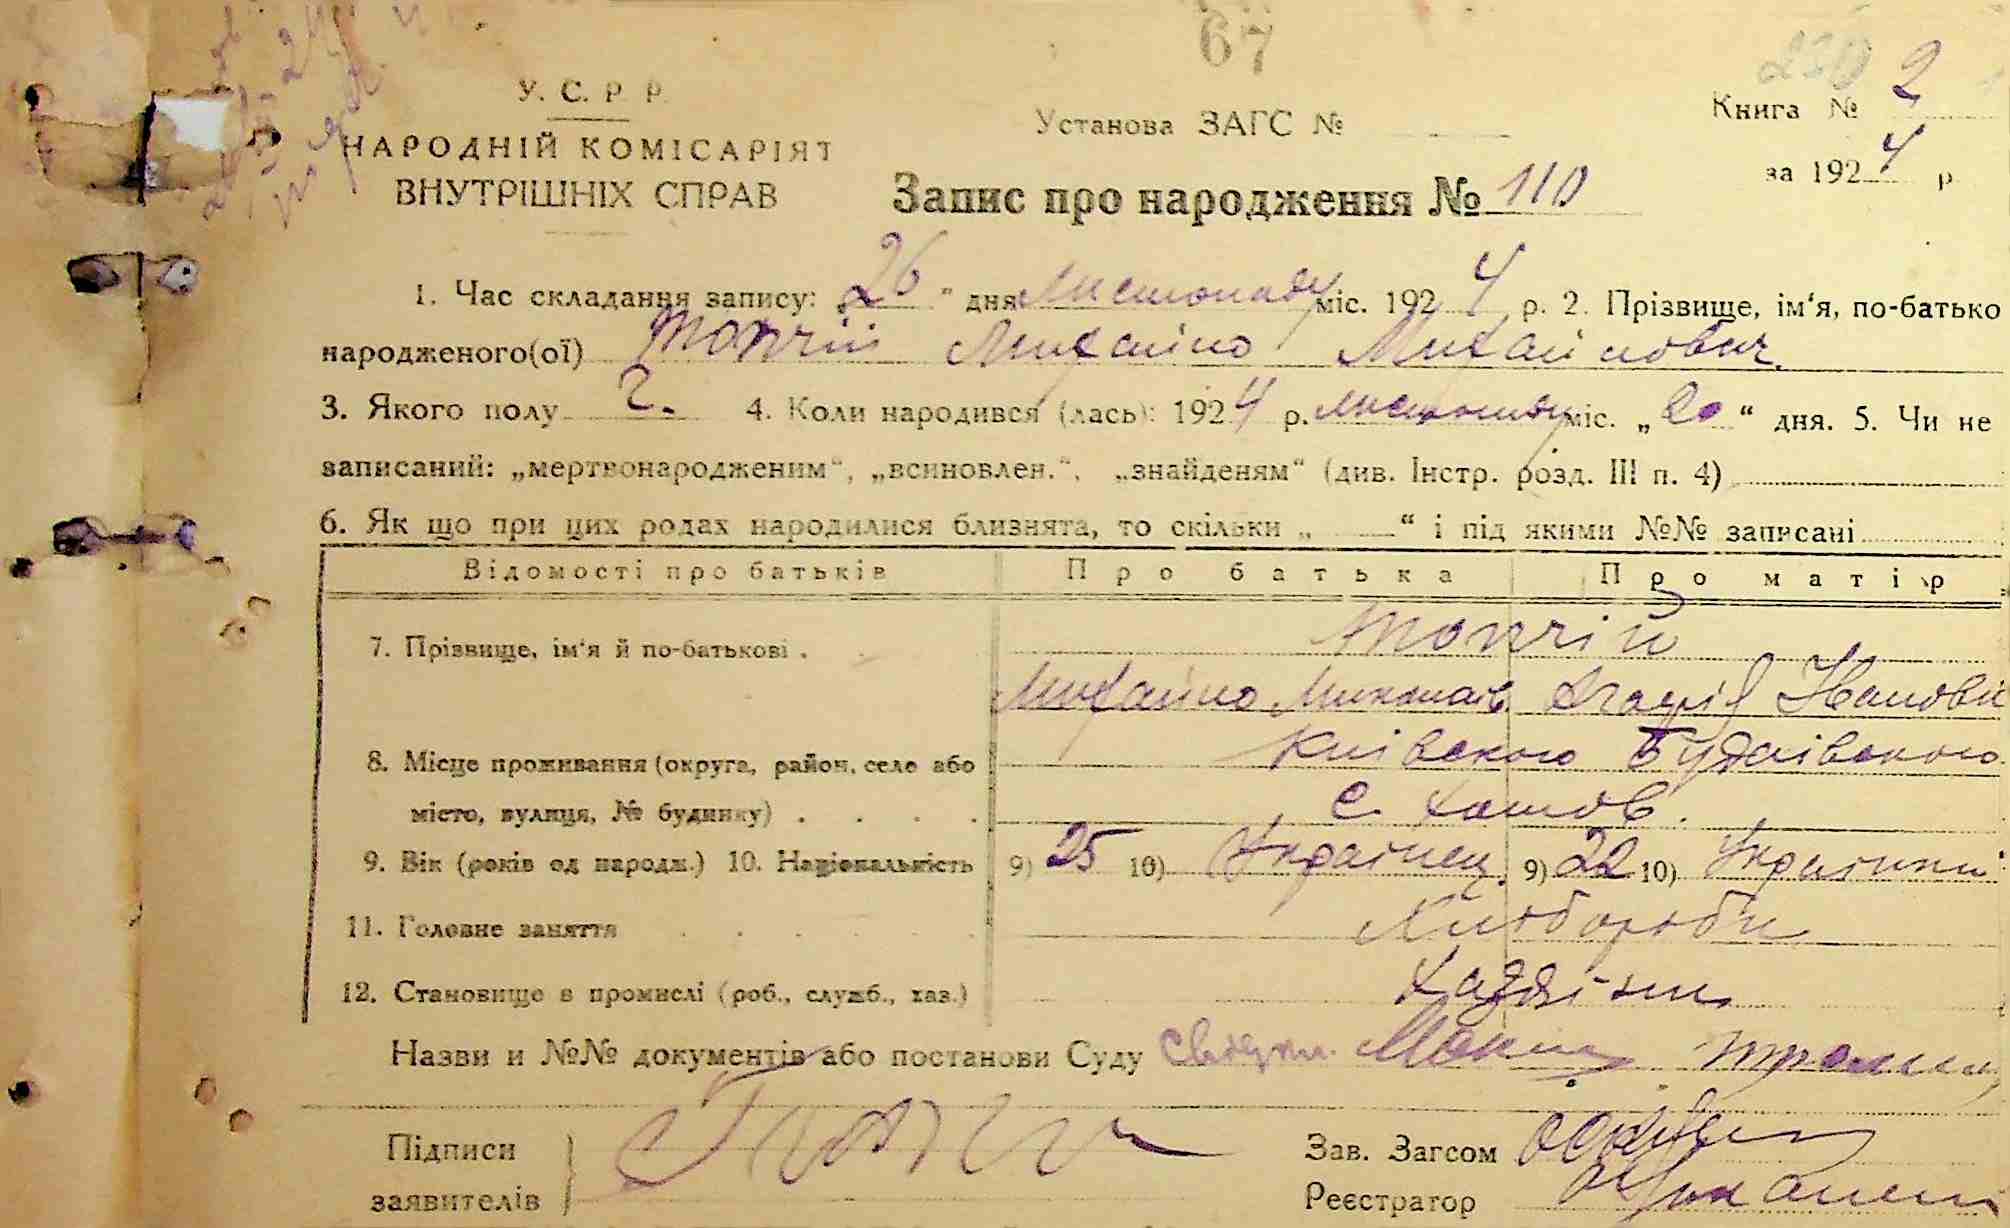 67
230 2
У. С. Р. Р.
Установа ЗАГС №
Книга №
НАРОДНІЙ КОМІСАРІЯТ
ВНУТРІШНІХ СПРАВ
за 1924 р
Запис про народження № 110
1. Час складання запису: „26“ дня Листопаду міс. 1924 р. 2. Прізвище, ім'я, по-батько
народженого(ої) Топчій Михайло Михайлович.
3. Якого полу Ч. 4. Коли народився (лась): 1924 р. листопаду міс. „20“ дня. 5. Чи не
записаний: „мертвонародженим“, „всиновлен.“, „знайденям“ (див. Інстр. розд. III п. 4)
6. Як що при цих родах народилися близнята, то скільки „ “ і під якими №№ записані
Відомості про батьків Про батька Про матір
7. Прізвище, ім'я й по-батькові . Топчій
Михайло Миколаїв. Агафія Івановн
8. Місце проживання (округа, район, село або Київского Будаївского
місто, вулиця, № будинку) . . . . с. Хотов.
9. Вік (років од народж.) 10. Національність 9) 25 10) Українец. 9) 22 10) Українки
11. Головне заняття Хлібороби
12. Становище в промислі (роб., служб., хаз.) Хазяїни
Назви и №№ документів або постанови Суду
Підписи
заявителів
Зав. Загсом
Реєстратор